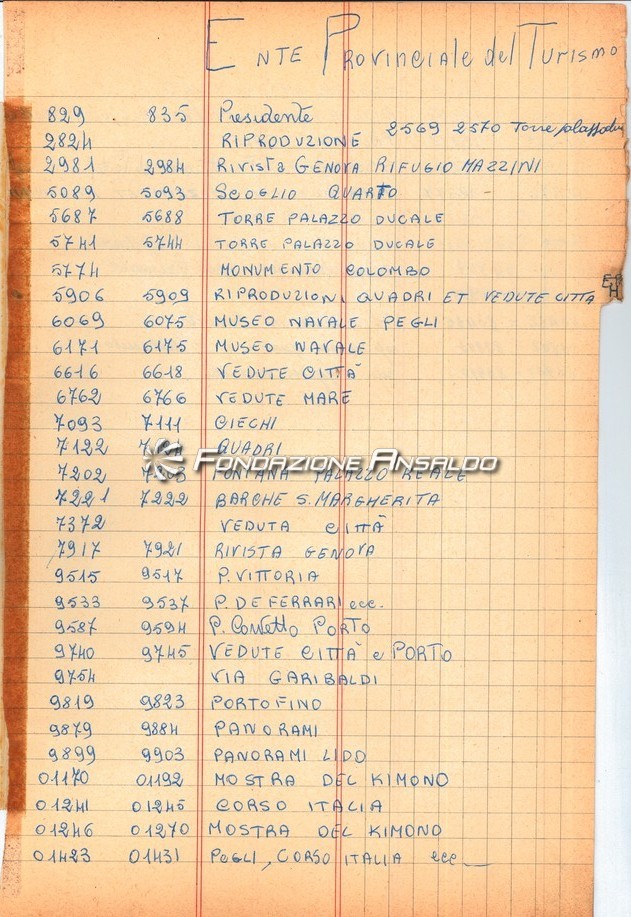 ENTE PROVINCIALE del TURISMO
829 835 Presidente
2569 2570 Torre
2824 RIPRODUZIONE
2981 2984 RIVISTA GENOVA RIFUGIO MAZZINI
5089 5093 SCOGLIO QUARTO
5687 5688 TORRE PALAZZO DUCALE
5741 5744 TORRE PALAZZO DUCALE
5774 MONUMENTO COLOMBO
5906 5909 RIPRODUZIONI QUADRI ET VEDUTE CITTA
6069 6075 MUSEO NAVALE PEGLI
6171 6175 MUSEO NAVALE
6616 6618 VEDUTE CITTÀ
6762 6766 VEDUTE MARE
7093 7111 CIECHI
7122 QUADRI
FONDAZIONE ANSALDO
7202 7203 FONTANA PALAZZO REALE
7221 7222 BARCHE S. MARGHERITA
7372 VEDUTA CITTÀ
7917 7921 RIVISTA GENOVA
9515 9517 P. VITTORIA
9533 9537 P. DE FERRARI ecc.
9587 9594 P. PORTO
9740 9745 VEDUTE CITTÀ e PORTO
9754 VIA GARIBALDI
9819 9823 PORTOFINO
9879 9884 PANORAMI
9899 9903 PANORAMI LIDO
01170 01192 MOSTRA DEL KIMONO
01241 01245 CORSO ITALIA
01246 01270 MOSTRA DEL KIMONO
01423 01431 PEGLI, CORSO ITALIA ecc